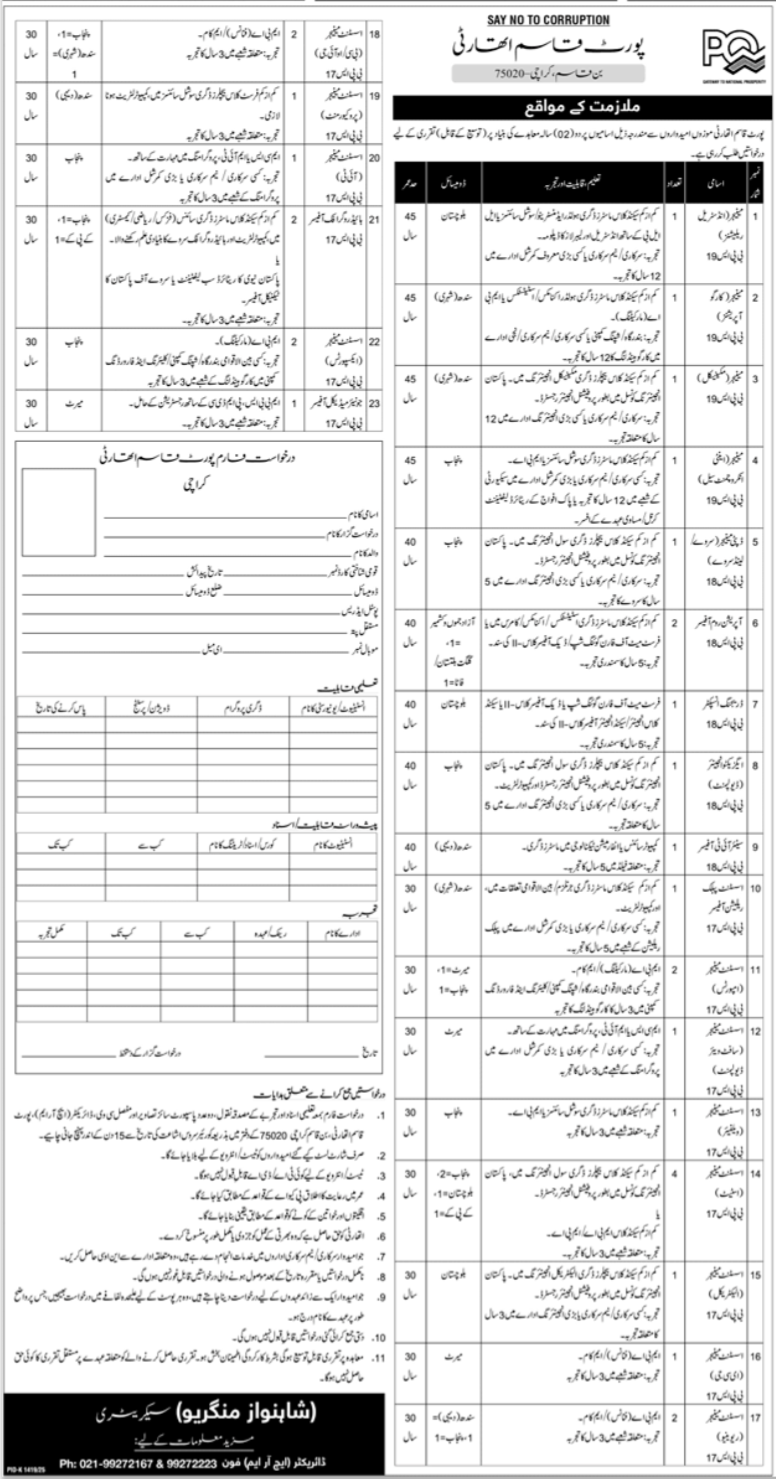 SAY NO TO CORRUPTION
پورٹ قاسم اتھارٹی
بن قاسم، کراچی-75020
PQA
GATEWAY TO NATIONAL PROSPERITY
ملازمت کے مواقع
پورٹ قاسم اتھارٹی موزوں امیدواروں سے مندرجہ ذیل اسامیوں پر دو (02) سالہ معاہدے کی بنیاد پر (توسیع کے قابل) تقرری کے لیے
درخواستیں طلب کر رہی ہے۔
نمبر شمار اسامی تعداد تعلیم، قابلیت اور تجربہ ڈومیسائل حد عمر
1 مینیجر (انڈسٹریل 1 کم از کم سیکنڈ کلاس ماسٹرز ڈگری ہولڈر ایڈمنسٹریشن/سوشل سائنسز یا ایل بلوچستان 45
ریلیشنز) ایل بی کے ساتھ انڈسٹریل اور لیبر لاز کا ڈپلومہ۔ سال
بی پی ایس 19 تجربہ: سرکاری/نیم سرکاری یا کسی بڑی معروف کمرشل ادارے میں
12 سال کا تجربہ۔
2 مینیجر (کارگو 1 کم از کم سیکنڈ کلاس ماسٹرز ڈگری ہولڈر اکنامکس/اسٹیٹسٹکس یا ایم بی سندھ (شہری) 45
آپریشنز) اے (مارکیٹنگ)۔ سال
بی پی ایس 19 تجربہ: بندرگاہ/شپنگ کمپنی یا کسی سرکاری/نیم سرکاری/نجی ادارے
میں کارگو ہینڈلنگ کا 12 سال کا تجربہ۔
3 مینیجر (مکینیکل) 1 کم از کم سیکنڈ کلاس بیچلرز ڈگری مکینیکل انجینئرنگ میں۔ پاکستان سندھ (شہری) 45
بی پی ایس 19 انجینئرنگ کونسل میں بطور پروفیشنل انجینئر رجسٹرڈ۔ سال
تجربہ: سرکاری/نیم سرکاری یا کسی بڑی انجینئرنگ ادارے میں 12
سال کا متعلقہ تجربہ۔
4 مینیجر (اینٹی 1 کم از کم سیکنڈ کلاس ماسٹرز ڈگری سوشل سائنسز یا ایم بی اے۔ پنجاب 45
انکروچمنٹ سیل) تجربہ: کسی سرکاری/نیم سرکاری یا بڑی کمرشل ادارے میں سیکیورٹی سال
بی پی ایس 19 کے شعبے میں 12 سال کا تجربہ یا پاک افواج کے ریٹائرڈ لیفٹیننٹ
کرنل/مساوی عہدے کے افسر۔
5 ڈپٹی مینیجر (سروے/ 1 کم از کم سیکنڈ کلاس بیچلرز ڈگری سول انجینئرنگ میں۔ پاکستان پنجاب 40
لینڈ سروے) انجینئرنگ کونسل میں بطور پروفیشنل انجینئر رجسٹرڈ۔ سال
بی پی ایس 18 تجربہ: سرکاری/نیم سرکاری یا کسی بڑی انجینئرنگ ادارے میں 5
سال کا سروے کا تجربہ۔
6 آپریشن روم آفیسر 2 کم از کم سیکنڈ کلاس ماسٹرز ڈگری اسٹیٹسٹکس/اکنامکس/کامرس میں یا آزاد جموں و کشمیر 40
بی پی ایس 18 فرسٹ میٹ آف فارن گوئنگ شپ/ڈیک آفیسر کلاس-II کی سند۔ =1، سال
تجربہ: 5 سال کا سمندری تجربہ۔ گلگت بلتستان/
فاٹا=1
7 ڈریجنگ انسپکٹر 1 فرسٹ میٹ آف فارن گوئنگ شپ یا ڈیک آفیسر کلاس-II یا سیکنڈ بلوچستان 40
بی پی ایس 18 کلاس انجینئر/سیکنڈ انجینئر آفیسر کلاس-II کی سند۔ سال
تجربہ: 5 سال کا سمندری تجربہ۔
8 ایگزیکٹو انجینئر 1 کم از کم سیکنڈ کلاس بیچلرز ڈگری سول انجینئرنگ میں۔ پاکستان پنجاب 40
(ڈیولپمنٹ) انجینئرنگ کونسل میں بطور پروفیشنل انجینئر رجسٹرڈ اور کمپیوٹر لٹریٹ۔ سال
بی پی ایس 18 تجربہ: سرکاری/نیم سرکاری یا کسی بڑی انجینئرنگ ادارے میں 5
سال کا متعلقہ تجربہ۔
9 سینئر آئی ٹی آفیسر 1 کمپیوٹر سائنس یا انفارمیشن ٹیکنالوجی میں ماسٹرز ڈگری۔ سندھ (دیہی) 40
بی پی ایس 18 تجربہ: متعلقہ فیلڈ میں 5 سال کا تجربہ۔ سال
10 اسسٹنٹ پبلک 1 کم از کم سیکنڈ کلاس ماسٹرز ڈگری جرنلزم/بین الاقوامی تعلقات میں، سندھ (شہری) 30
ریلیشن آفیسر اور کمپیوٹر لٹریٹ۔ سال
بی پی ایس 17 تجربہ: سرکاری/نیم سرکاری یا بڑی کمرشل ادارے میں پبلک
ریلیشن کے شعبے میں 5 سال کا تجربہ۔
11 اسسٹنٹ مینیجر 2 ایم بی اے (مارکیٹنگ)/ایم کام۔ میرٹ=1، 30
(امپورٹس) تجربہ: کسی بین الاقوامی بندرگاہ/شپنگ کمپنی/کلیئرنگ اینڈ فارورڈنگ پنجاب=1 سال
بی پی ایس 17 کمپنی میں 3 سال کا کارگو ہینڈلنگ کا تجربہ
12 اسسٹنٹ مینیجر 1 ایم سی ایس یا ایم آئی ٹی، پروگرامنگ میں مہارت کے ساتھ۔ میرٹ 30
(سافٹ ویئر تجربہ: کسی سرکاری/نیم سرکاری یا بڑی کمرشل ادارے میں سال
ڈیولپمنٹ) پروگرامنگ کے شعبے میں 3 سال کا تجربہ۔
بی پی ایس 17
13 اسسٹنٹ مینیجر 1 کم از کم سیکنڈ کلاس ماسٹرز ڈگری سوشل سائنسز یا ایم بی اے۔ پنجاب 30
(ویلفیئر) تجربہ: متعلقہ شعبے میں 3 سال کا تجربہ سال
بی پی ایس 17
14 اسسٹنٹ مینیجر 4 کم از کم سیکنڈ کلاس بیچلرز ڈگری سول انجینئرنگ میں، پاکستان پنجاب=2، 30
(اسٹیٹ) انجینئرنگ کونسل میں بطور پروفیشنل انجینئر رجسٹرڈ۔ بلوچستان=1، سال
بی پی ایس 17 یا کے پی کے=1
کم از کم سیکنڈ کلاس ایم پی اے/ایم بی اے۔
تجربہ: متعلقہ شعبے میں 3 سال کا تجربہ
15 اسسٹنٹ مینیجر 1 کم از کم سیکنڈ کلاس بیچلرز ڈگری الیکٹریکل انجینئرنگ میں۔ پاکستان بلوچستان 30
(الیکٹریکل) انجینئرنگ کونسل میں بطور پروفیشنل انجینئر رجسٹرڈ۔ سال
بی پی ایس 17 تجربہ: کسی سرکاری/نیم سرکاری یا بڑی انجینئرنگ ادارے میں 3 سال
کا متعلقہ تجربہ۔
16 اسسٹنٹ مینیجر 1 ایم بی اے (فنانس)/ایم کام۔ میرٹ 30
(ای سی جی) تجربہ: متعلقہ شعبے میں 3 سال کا تجربہ سال
بی پی ایس 17
17 اسسٹنٹ مینیجر 2 ایم بی اے (فنانس)/ایم کام۔ سندھ (دیہی)= 30
(ریونیو) تجربہ: متعلقہ شعبے میں 3 سال کا تجربہ 1، پنجاب=1 سال
بی پی ایس 17
18 اسسٹنٹ مینیجر 2 ایم بی اے (فنانس)/ایم کام۔ پنجاب=1، 30
(بی سی/او آئی جی) تجربہ: متعلقہ شعبے میں 3 سال کا تجربہ سندھ (شہری)= سال
بی پی ایس 17 1
19 اسسٹنٹ مینیجر 1 کم از کم فرسٹ کلاس بیچلرز ڈگری سوشل سائنسز میں، کمپیوٹر لٹریٹ ہونا سندھ (دیہی) 30
(پروکیورمنٹ) لازمی۔ سال
بی پی ایس 17 تجربہ: متعلقہ شعبے میں 3 سال کا تجربہ
20 اسسٹنٹ مینیجر 1 ایم سی ایس یا ایم آئی ٹی، پروگرامنگ میں مہارت کے ساتھ۔ پنجاب 30
(آئی ٹی) تجربہ: کسی سرکاری/نیم سرکاری یا بڑی کمرشل ادارے میں سال
بی پی ایس 17 پروگرامنگ کے شعبے میں 3 سال کا تجربہ۔
21 ہائیڈروگرافک آفیسر 2 کم از کم سیکنڈ کلاس ماسٹرز ڈگری سائنس (فزکس/ریاضی/کیمسٹری) پنجاب=1، 30
بی پی ایس 17 میں، کمپیوٹر لٹریٹ اور ہائیڈروگرافک سروے کا بنیادی علم رکھنے والا۔ کے پی کے=1 سال
یا
پاکستان نیوی کا ریٹائرڈ سب لیفٹیننٹ یا سروے آف پاکستان کا
ٹیکنیکل آفیسر۔
تجربہ: متعلقہ شعبے میں 3 سال کا تجربہ۔
22 اسسٹنٹ مینیجر 1 ایم بی اے (مارکیٹنگ)۔ پنجاب 30
(ایکسپورٹس) تجربہ: کسی بین الاقوامی بندرگاہ/شپنگ کمپنی/کلیئرنگ اینڈ فارورڈنگ سال
بی پی ایس 17 کمپنی میں کارگو ہینڈلنگ کے شعبے میں 3 سال کا تجربہ
23 جونیئر میڈیکل آفیسر 1 ایم بی بی ایس، پی ایم ڈی سی کے ساتھ رجسٹریشن کے حامل۔ میرٹ 30
بی پی ایس 17 تجربہ: متعلقہ شعبے میں 3 سال کا تجربہ۔ سال
درخواست فارم پورٹ قاسم اتھارٹی
کراچی
اسامی کا نام
درخواست گزار کا نام
والد کا نام
قومی شناختی کارڈ نمبر تاریخ پیدائش
ڈومیسائل ضلع ڈومیسائل
پوسٹل ایڈریس
مستقل پتہ
موبائل نمبر ای میل
تعلیمی قابلیت
انسٹیٹیوٹ/یونیورسٹی کا نام ڈگری پروگرام ڈویژن/پرسنٹیج پاس کرنے کی تاریخ
پیشہ ورانہ قابلیت/اسناد
انسٹیٹیوٹ کا نام کورس/اسناد/ٹریننگ کا نام کب سے کب تک
تجربہ
ادارے کا نام رینک/عہدہ کب سے کب تک مکمل تجربہ
تاریخ درخواست گزار کے دستخط
درخواستیں جمع کرانے سے متعلق ہدایات
1. درخواست فارم بمعہ تعلیمی اسناد اور تجربے کے مصدقہ نقول، دو عدد پاسپورٹ سائز تصاویر اور مفصل سی وی، ڈائریکٹر (ایچ آر ایم)، پورٹ
قاسم اتھارٹی، بن قاسم کراچی 75020 کے دفتر میں بذریعہ کوریئر سروس اشاعت کی تاریخ سے 15 دن کے اندر پہنچ جانی چاہیے۔
2. صرف شارٹ لسٹ کیے گئے امیدواروں کو ٹیسٹ/انٹرویو کے لیے بلایا جائے گا۔
3. ٹیسٹ/انٹرویو کے لیے کوئی ٹی اے/ڈی اے قابل قبول نہیں ہوگا۔
4. عمر میں رعایت کا اطلاق پی کیو اے کے قواعد کے مطابق کیا جائے گا۔
5. اقلیتوں اور خواتین کے کوٹے کو قواعد کے مطابق یقینی بنایا جائے گا۔
6. اتھارٹی کو حق حاصل ہے کہ وہ بھرتی کے عمل کو جزوی یا مکمل طور پر منسوخ کر دے۔
7. جو امیدوار سرکاری/نیم سرکاری اداروں میں خدمات انجام دے رہے ہیں، وہ متعلقہ ادارے سے این او سی حاصل کریں۔
8. نامکمل درخواستیں یا مقررہ تاریخ کے بعد موصول ہونے والی درخواستیں قابل قبول نہیں ہوں گی۔
9. جو امیدوار ایک سے زائد عہدوں کے لیے درخواست دینا چاہتے ہیں، وہ ہر پوسٹ کے لیے علیحدہ لفافے میں درخواست بھیجیں، جس پر واضح
طور پر عہدے کا نام درج ہو۔
10. دستی جمع کرائی گئی درخواستیں قابل قبول نہیں ہوں گی۔
11. معاہدہ پر تقرری قابل توسیع ہوگی بشرط کارکردگی اطمینان بخش ہو۔ تقرری حاصل کرنے والے کو متعلقہ عہدے پر مستقل تقرری کا کوئی حق
حاصل نہیں ہوگا۔
(شاہنواز منگریو) سیکریٹری
مزید معلومات کے لیے:
ڈائریکٹر (ایچ آر ایم) فون Ph: 021-99272167 & 99272223
PID-K 1419/25